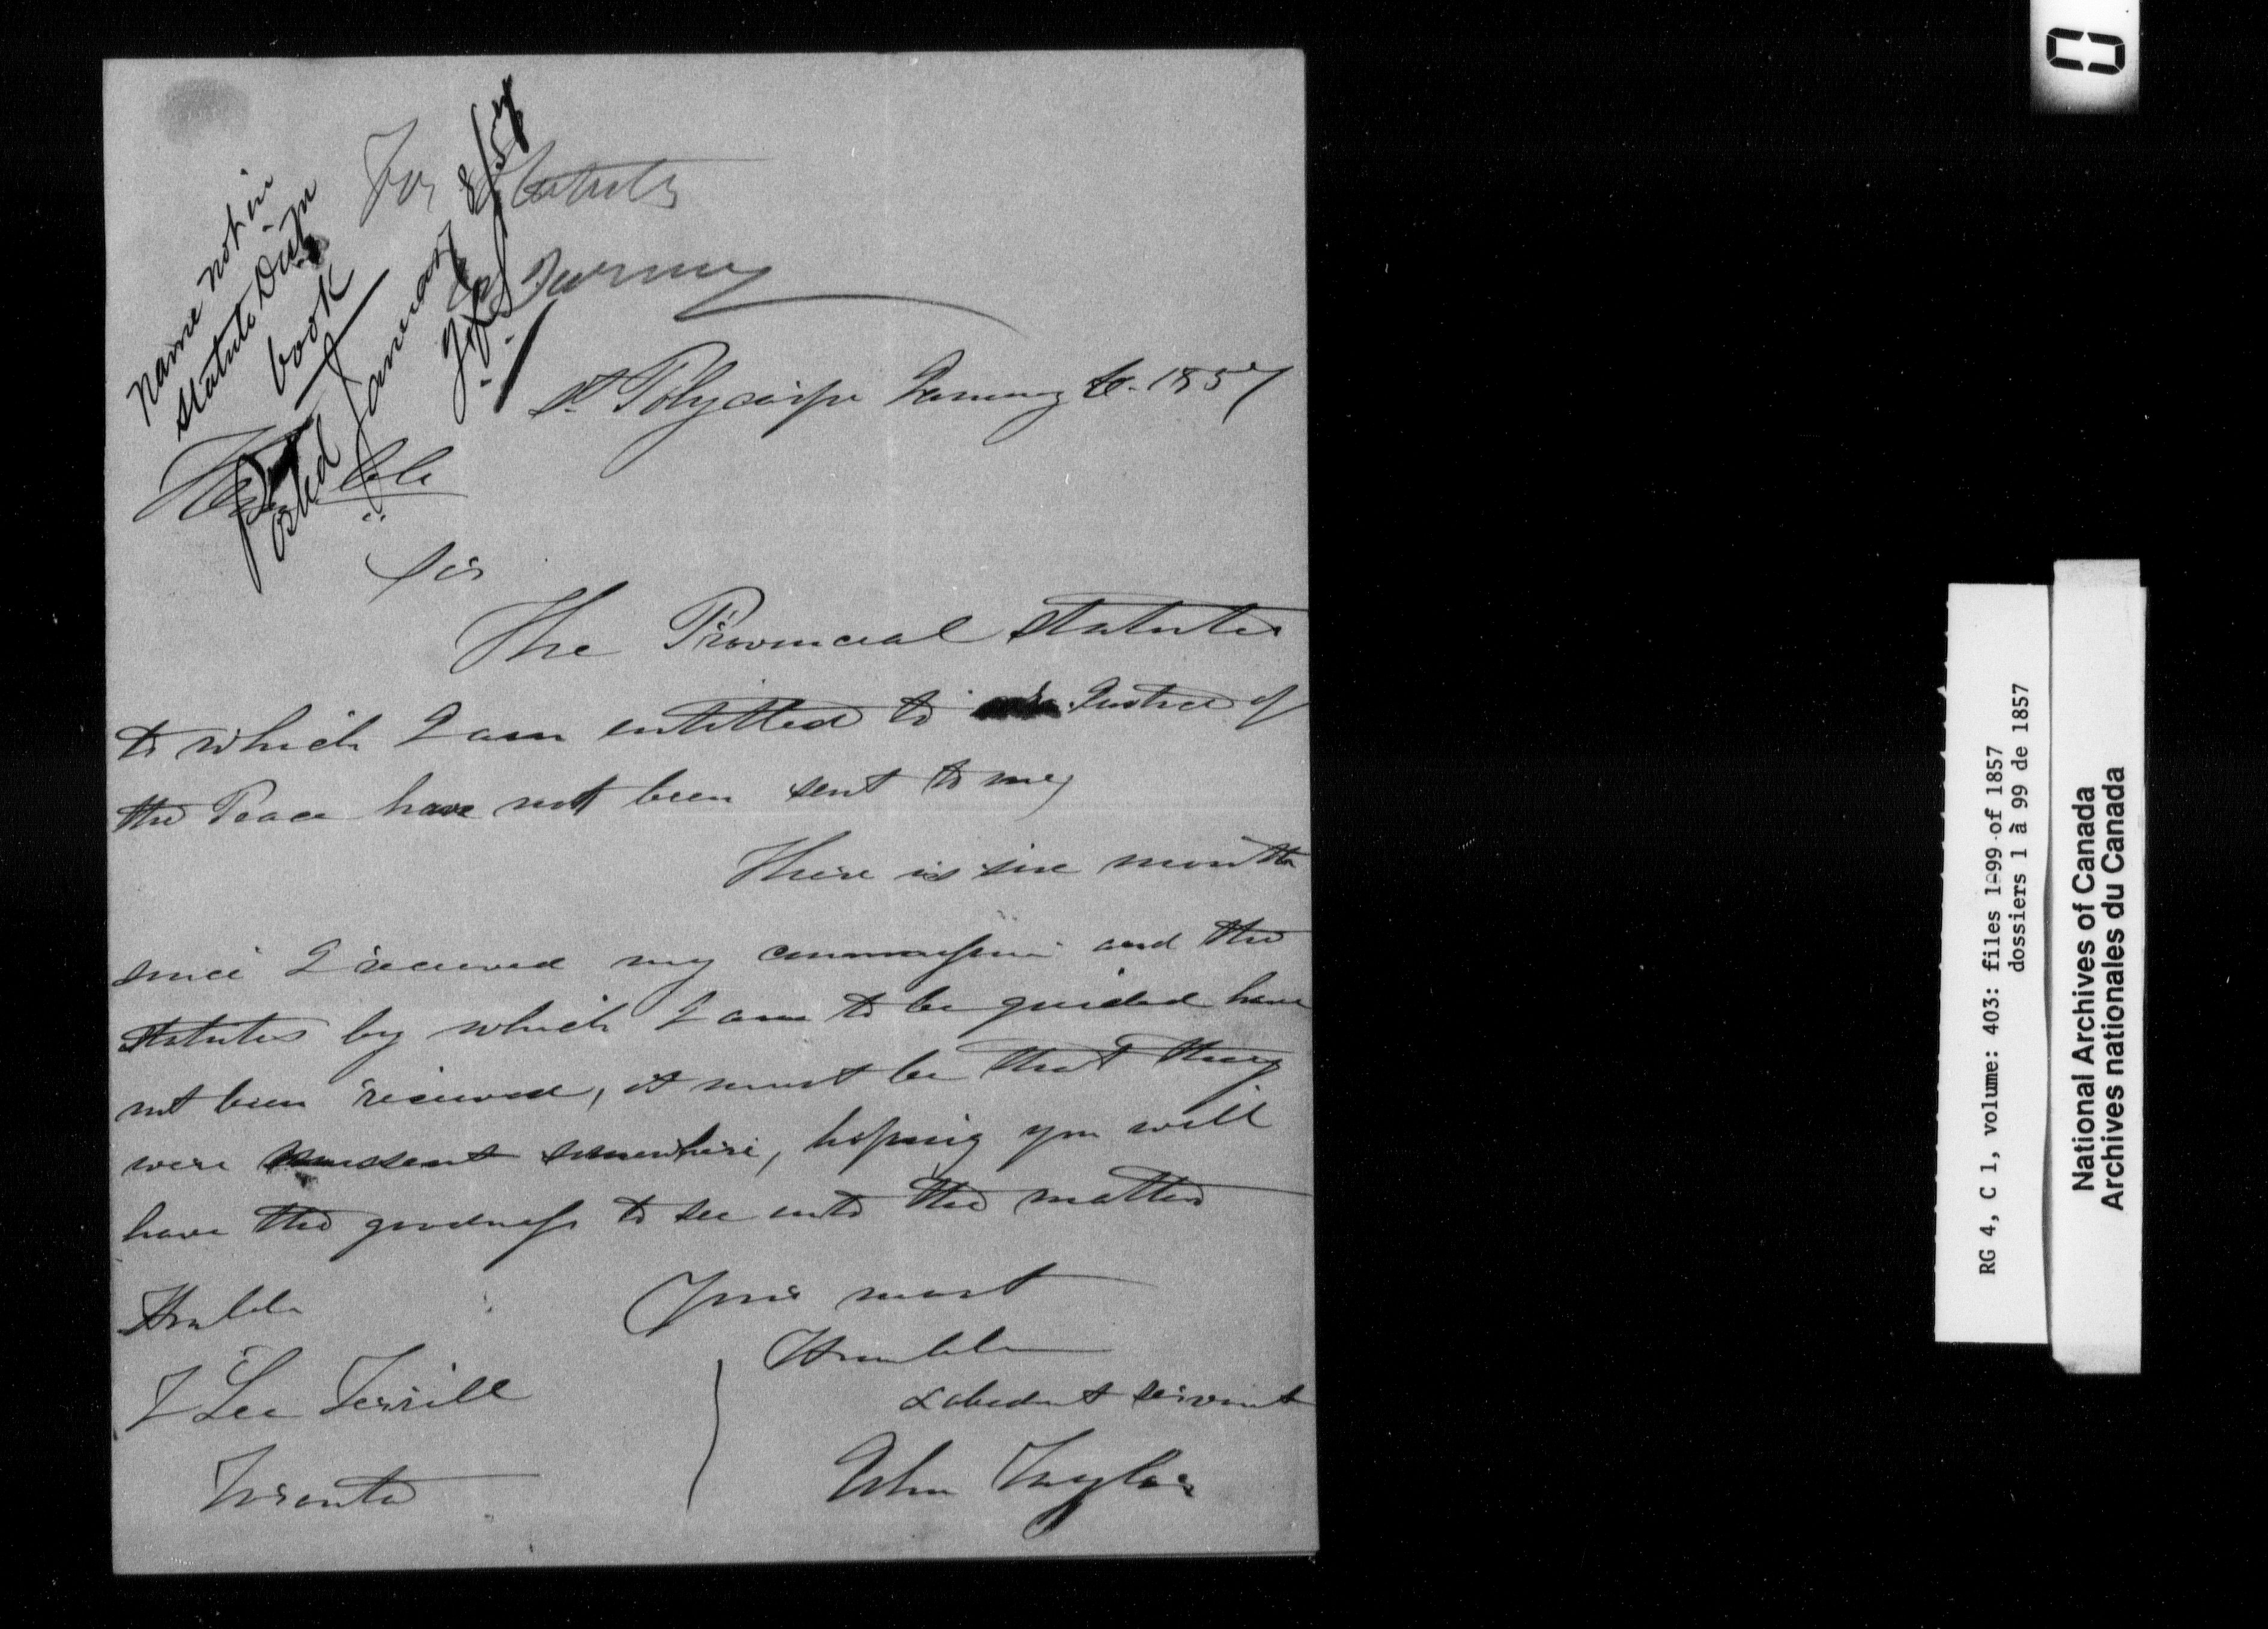 For Statutes
name not in
Statute Distn
book
Posted January 8/57
St Polycarpe January 6. 1857
Honble
Sir
The Provincial statutes
to which I am entitled to Justice of
the Peace have not been sent to me,
There is six months
since I received my commission and the
statutes by which I am to be guided have
not been received, it must be that they
were missent somewhere, hoping you will
have the goodness to see into the matter
Your most
Humble
& obedient servant
John Taylor
Honble
T Lee Terrill
Toronto
RG 4, C 1, volume: 403: files 1-99 of 1857
dossiers 1 à 99 de 1857
National Archives of Canada
Archives nationales du Canada